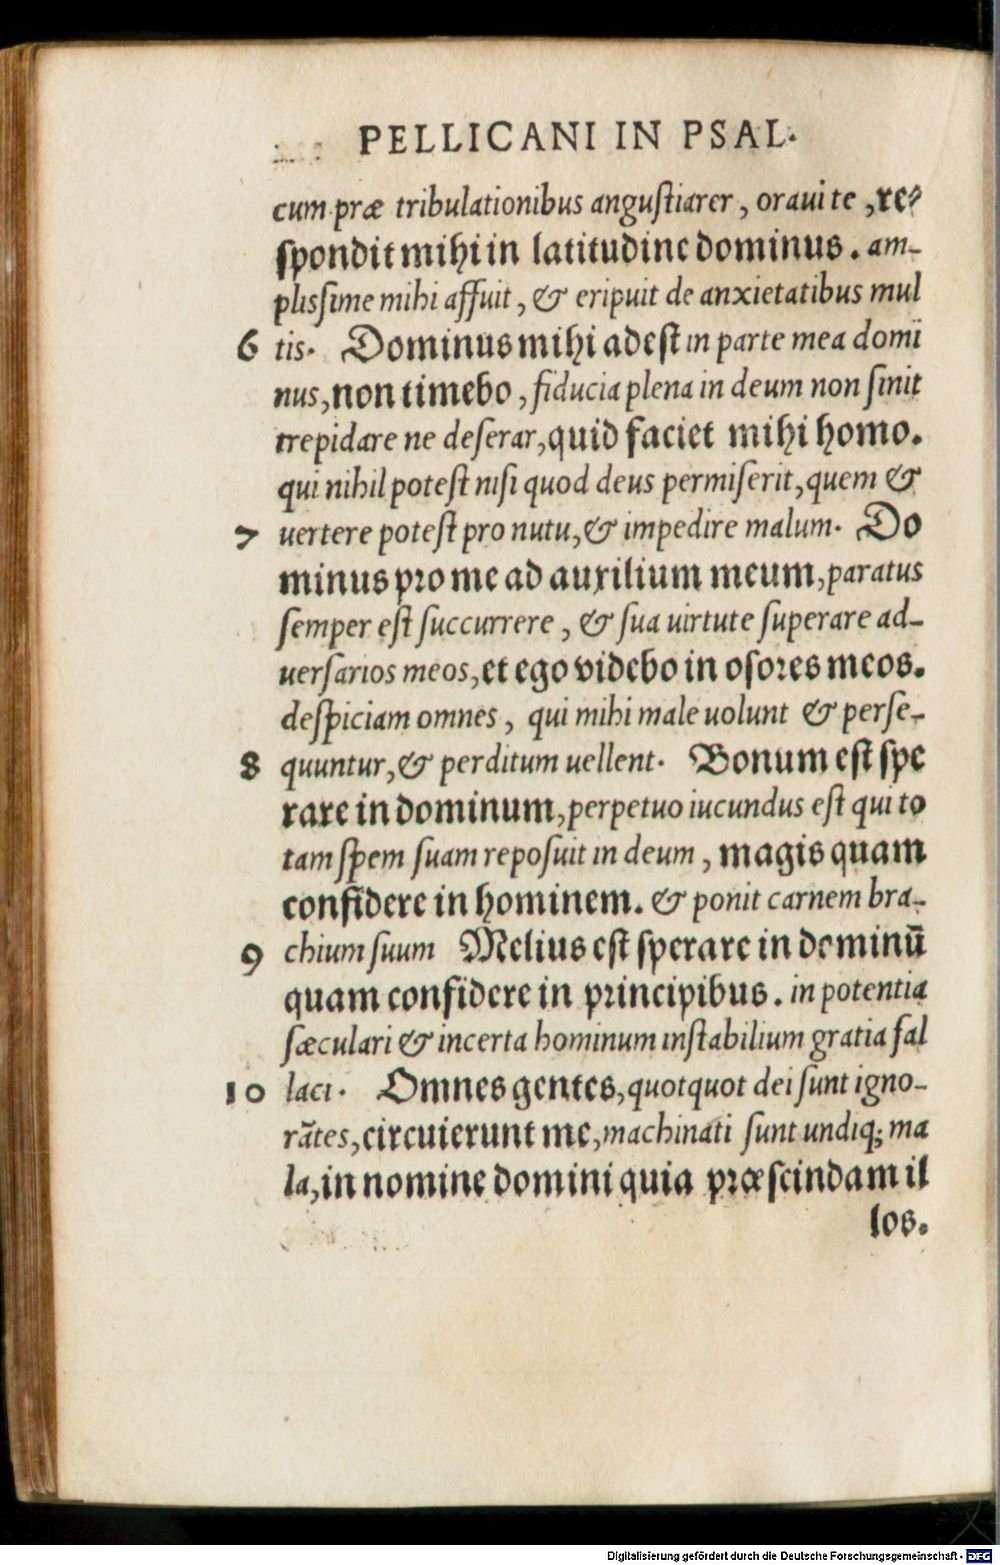 PELLICANI IN PSAL.
cum præ tribulationibus anguſtiarer, oraui te, re⸗
ſpondit mihi in latitudine dominus. am-
pliſſime mihi affuit, & eripuit de anxietatibus mul
6 tis. Dominus mihi adeſt in parte mea domi
nus, non timebo, fiducia plena in deum non ſinit
trepidare ne deſerar, quid faciet mihi homo.
qui nihil poteſt niſi quod deus permiſerit, quem &
7 uertere poteſt pro nutu, & impedire malum. Do
minus pro me ad auxilium meum, paratus
ſemper eſt ſuccurrere, & ſua uirtute ſuperare ad-
uerſarios meos, et ego videbo in oſores meos.
deſpiciam omnes, qui mihi male uolunt & perſe-
8 quuntur, & perditum uellent. Bonum eſt ſpe
rare in dominum, perpetuo iucundus eſt qui to
tam ſpem ſuam repoſuit in deum, magis quam
confidere in hominem. & ponit carnem bra-
9 chium ſuum Melius eſt ſperare in dominū
quam confidere in principibus. in potentia
ſæculari & incerta hominum inſtabilium gratia fal
10 laci. Omnes gentes, quotquot dei ſunt igno-
rātes, circuierunt me, machinati ſunt undiq; ma
la, in nomine domini quia præſcindam il
los.
Digitalisierung gefördert durch die Deutsche Forschungsgemeinschaft - DFG